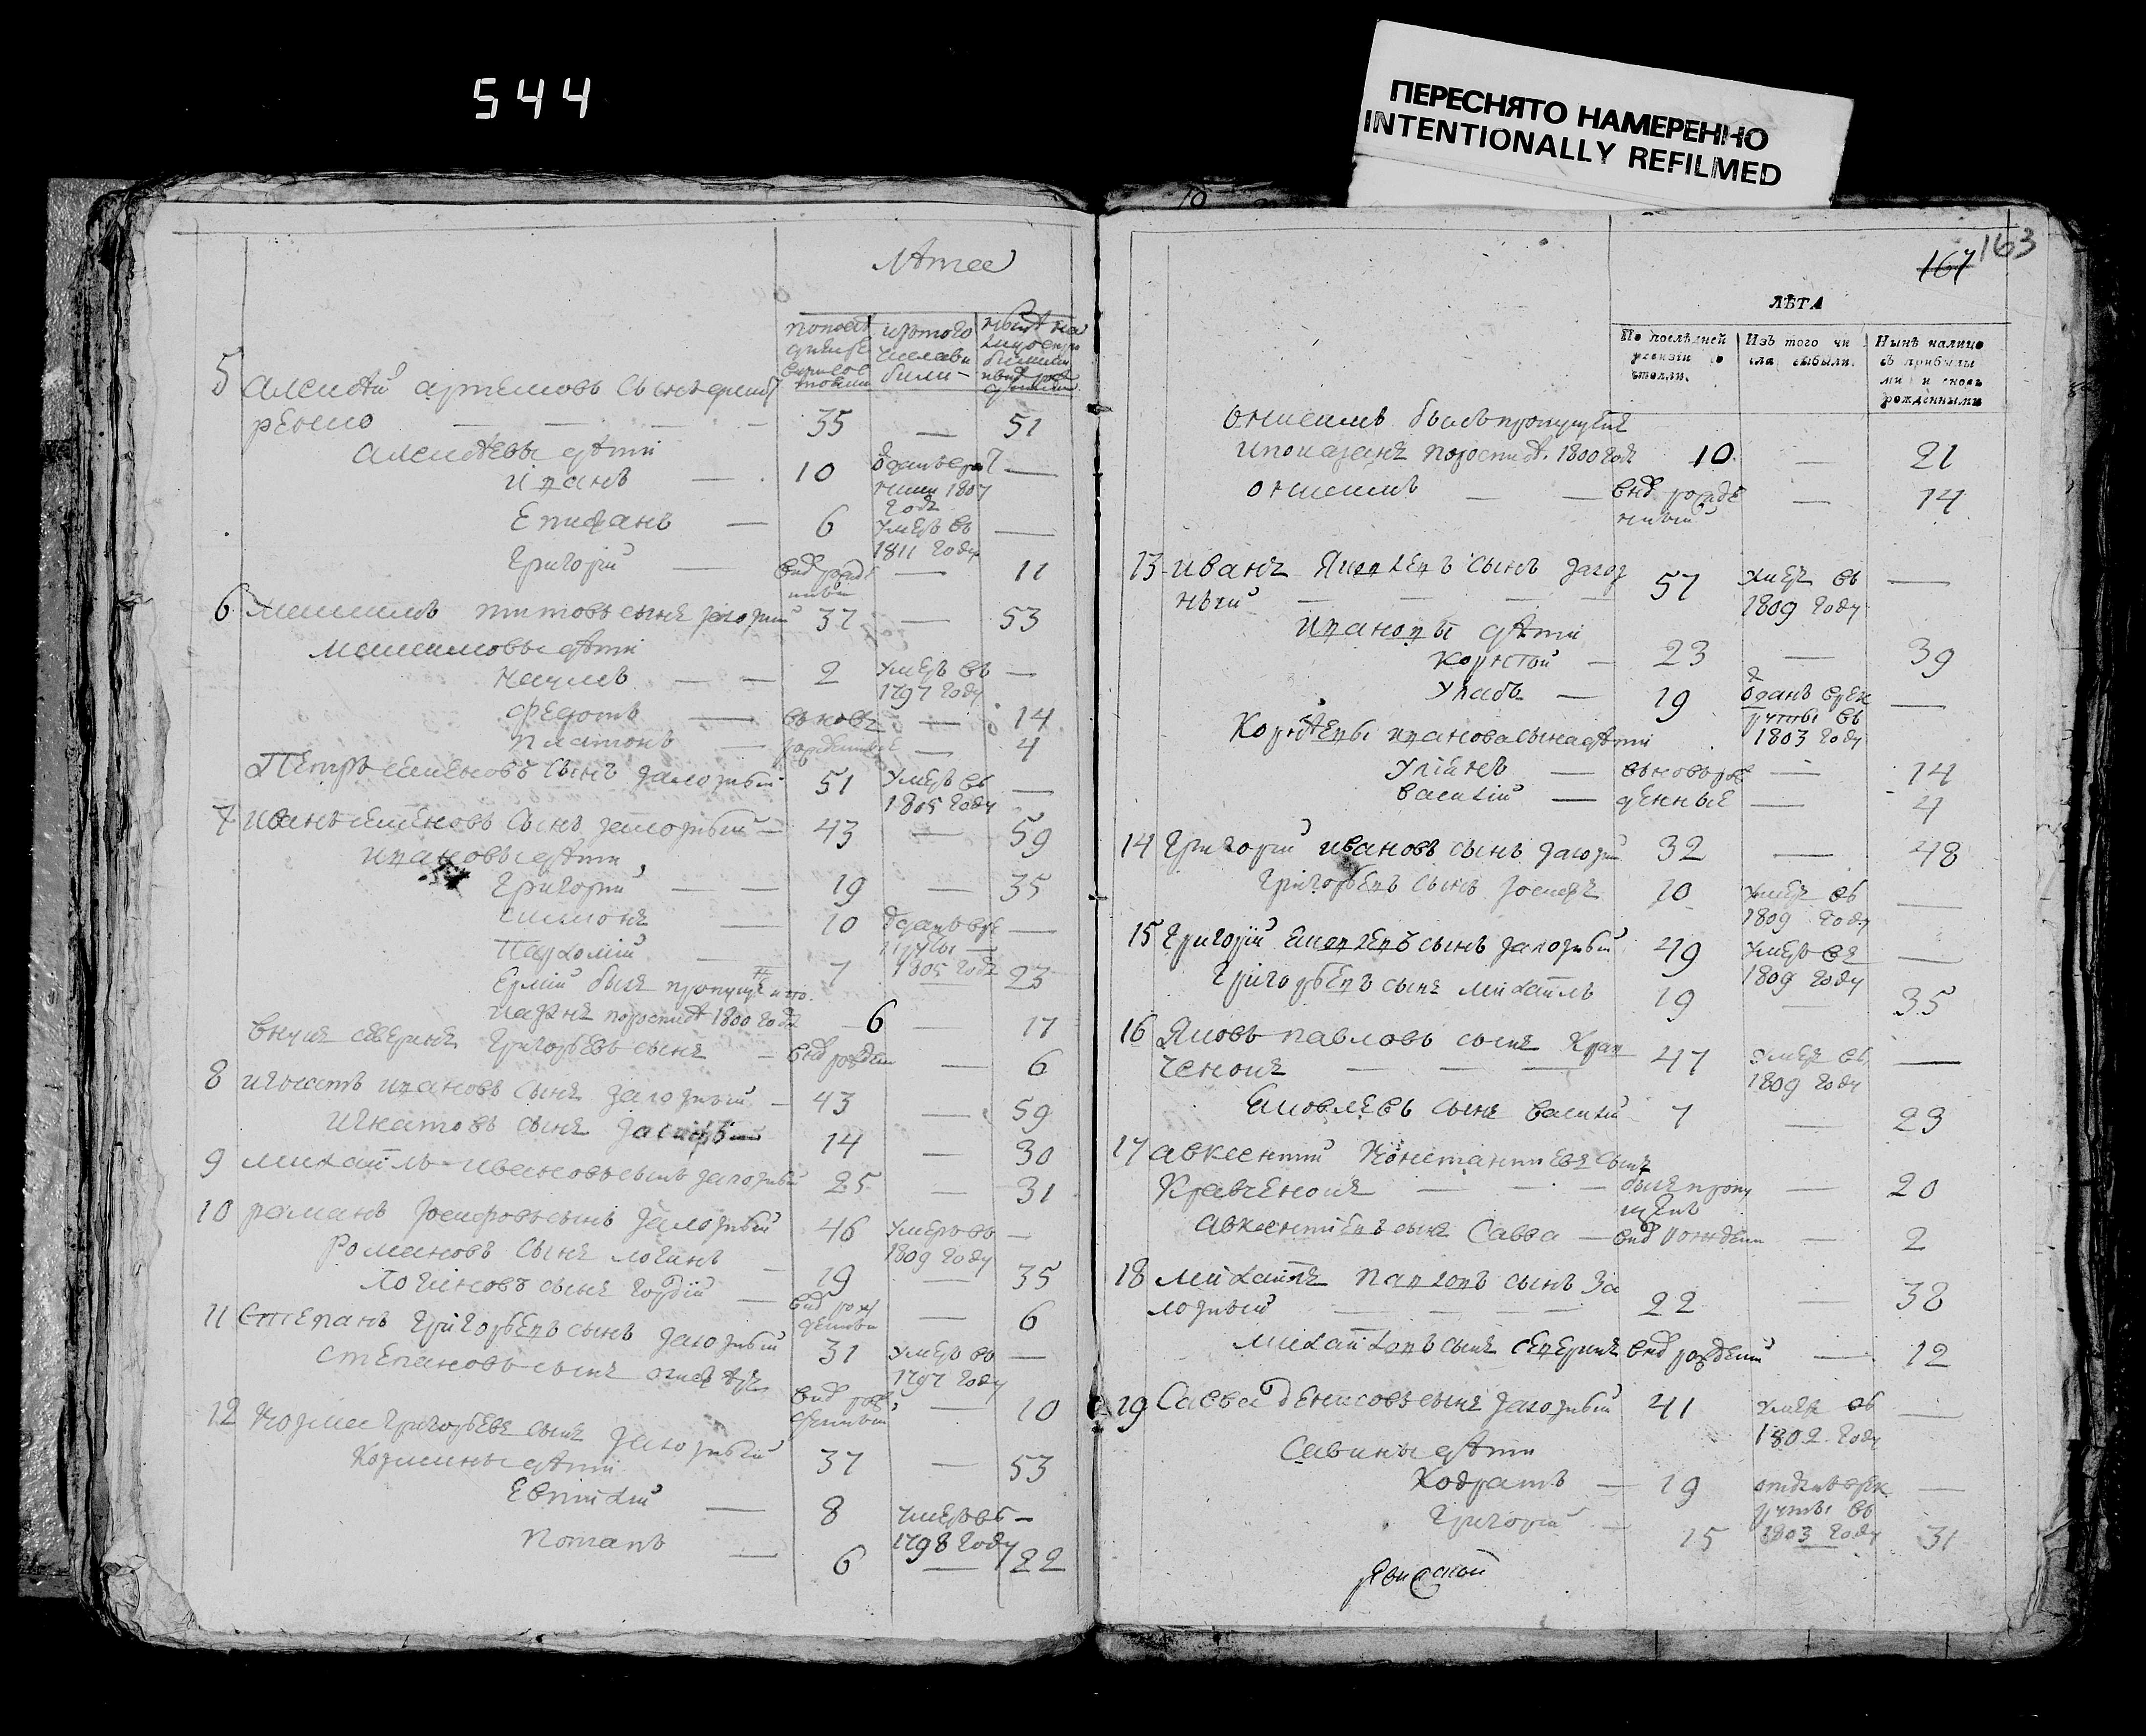 544
ПЕРЕСНЯТО НАМЕРЕННО
INTENTIONALLY REFILMED
163
167
лѣтса
5 Алексѣй артемовъ сынъ
ренко — 35 — 51
Алексѣевы дѣти
иванъ — 10 1807 годѣ —
Епифанъ — 6 умеръ въ 1811 году —
Григорій — вновь рожденный — 11
6 Максимъ титовъ сынъ залозный 37 — 53
Максимовы дѣти
наумъ — 2 умеръ въ 1797 году —
Федотъ — вновь — 14
платонъ — рожденные — 4
Петръ семеновъ сынъ залозный 51 умеръ въ 1805 году —
7 Иванъ семеновъ сынъ залозный — 43 — 59
ивановы дѣти
Григорій — 19 — 35
симонъ — 10 отданъ въ рекруты 1805 годѣ —
Пархомій — 7 — 23
Ермій былъ пропущенъ и по
казанъ поросписѣ 1800 года 6 — 17
внукъ северинъ Григорьевъ сынъ — внов рожден — 6
8 игнатъ ивановъ сынъ залозный — 43 — 59
Игнатовъ сынъ 14 — 30
9 михаилъ ивановъ сынъ залозный 25 — 31
10 романъ Іосифовъ сынъ залозный 46 умеръ въ 1809 году —
Романовъ сынъ логинъ — 19 — 35
Логиновъ сынъ гордій — внов рожденный — 6
11 Степанъ Григорьевъ сынъ залозный 31 умеръ въ 1797 году —
Степановъ сынъ внов рожденный — 10
12 Козма Григорьевъ сынъ залозный 37 — 53
Козмины дѣти
Евтихій — 8 умеръ въ 1798 году —
Потапъ — 6 — 22
ЛѢТА
По послѣдней ревизіи состояли.
Изъ того числа выбыли.
Нынѣ налицо съ прибылыми и вновь рожденными
онисимъ былъ пропущенъ
и показанъ поросписѣ 1800 годѣ 10 — 21
онисимъ — внов рожденный — 14
13 иванъ Яковлевъ сынъ залоз
ный — 57 умеръ въ 1809 году —
ивановы дѣти
корнѣй — 23 — 39
Уласъ — 19 отданъ в рекруты въ 1803 году —
Корнѣевы иванова сына дѣти
уліянъ — вновь рож — 14
василій — денные — 4
14 Григорій ивановъ сынъ залозн 32 — 48
Григорьевъ сынъ Іосифъ 10 умеръ въ 1809 году —
15 Григорій яковлевъ сынъ залозный 49 умеръ въ 1809 году —
Григорьевъ сынъ михаилъ 19 — 35
16 Яковъ павловъ сынъ Крав
ченокъ — 47 умеръ въ 1809 году —
яковлевъ сынъ василій 7 — 23
17 авксентій Константиевъ сынъ
Кравченокъ — былъ пропущенъ — 20
Авксентіевъ сынъ Савва — внов рожден — 2
18 михаилъ павловъ сынъ За
лозный — 22 — 38
михайловъ сынъ северинъ внов рожденый — 12
19 Савва денисовъ сынъ залозный 41 умеръ въ 1802 году —
Савины дѣти
Кодратъ — 19 отданъ в рекруты въ 1803 году —
Григорій — 15 — 31